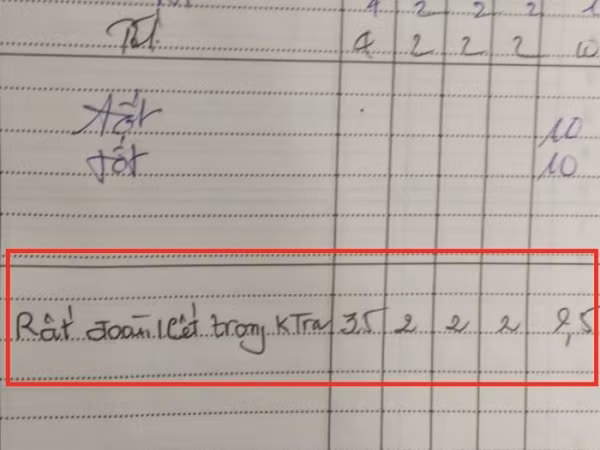 4 2 2 2 1
Tốt 4 2 2 2 10
Tốt 10
tốt 10
Rất đoàn kết trong KTra 3,5 2 2 2 9,5